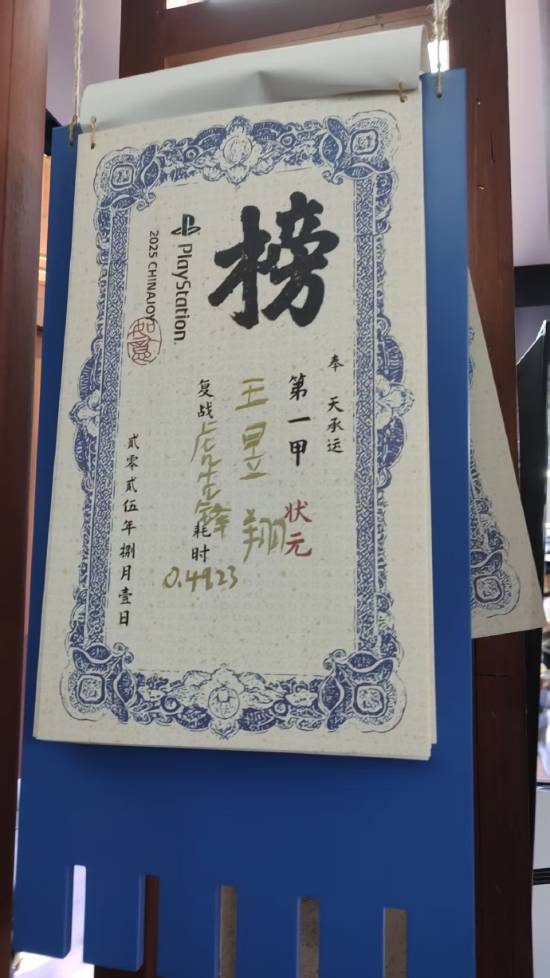 榜
奉天承运
第一甲 状元
王昱翔
复战虎先锋耗时
0.4923
贰零贰伍年捌月壹日
PlayStation
2025 CHINAJOY
如意